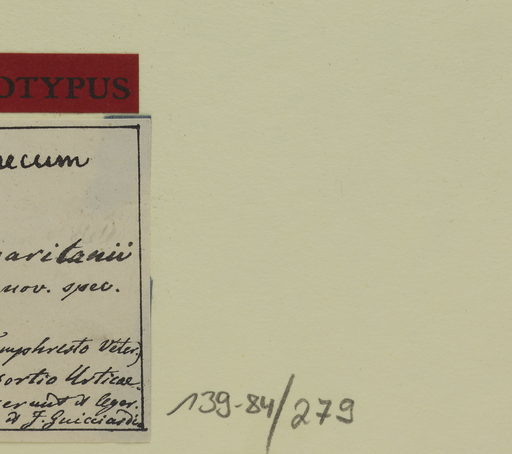 OTYPUS
aecum
aritanii
nov. spec.
mphresto Veter.
sortio Urticae
erunt et leger.
et F. Guicciardi
139-84/279